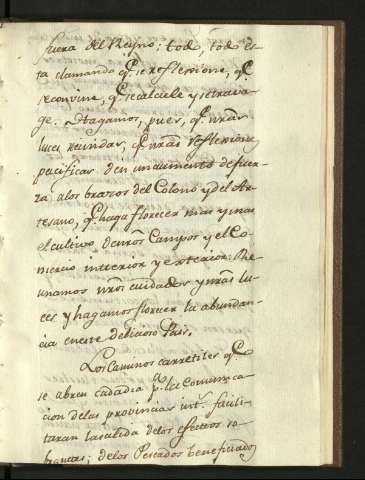 fuera del Reyno: todo, todo es-
ta clamando q.e se reflexione, q.e
se convine, q.e se calcule y se trava-
ge. Hagamos, pues, q.e nr̃as
luces reunidas, q.e nr̃as reflexiones
pacificas den un aumento de fuer-
za a los brazos del Colono y del Ar-
tesano, q.e haga florecer mas y mas
el cultivo de nr̃os Campos y el Co-
mercio interior y exterior: Re-
unamos nr̃os cuidados y nr̃as lu-
ces y hagamos florecer la abundan-
cia en este delicioso Pais.
Los Caminos carretiles q.e
se abren cada dia p.a la comunica-
cion de las provincias int.s facili-
taran la salida de los efectos so-
brantes; de los Pescados beneficiados